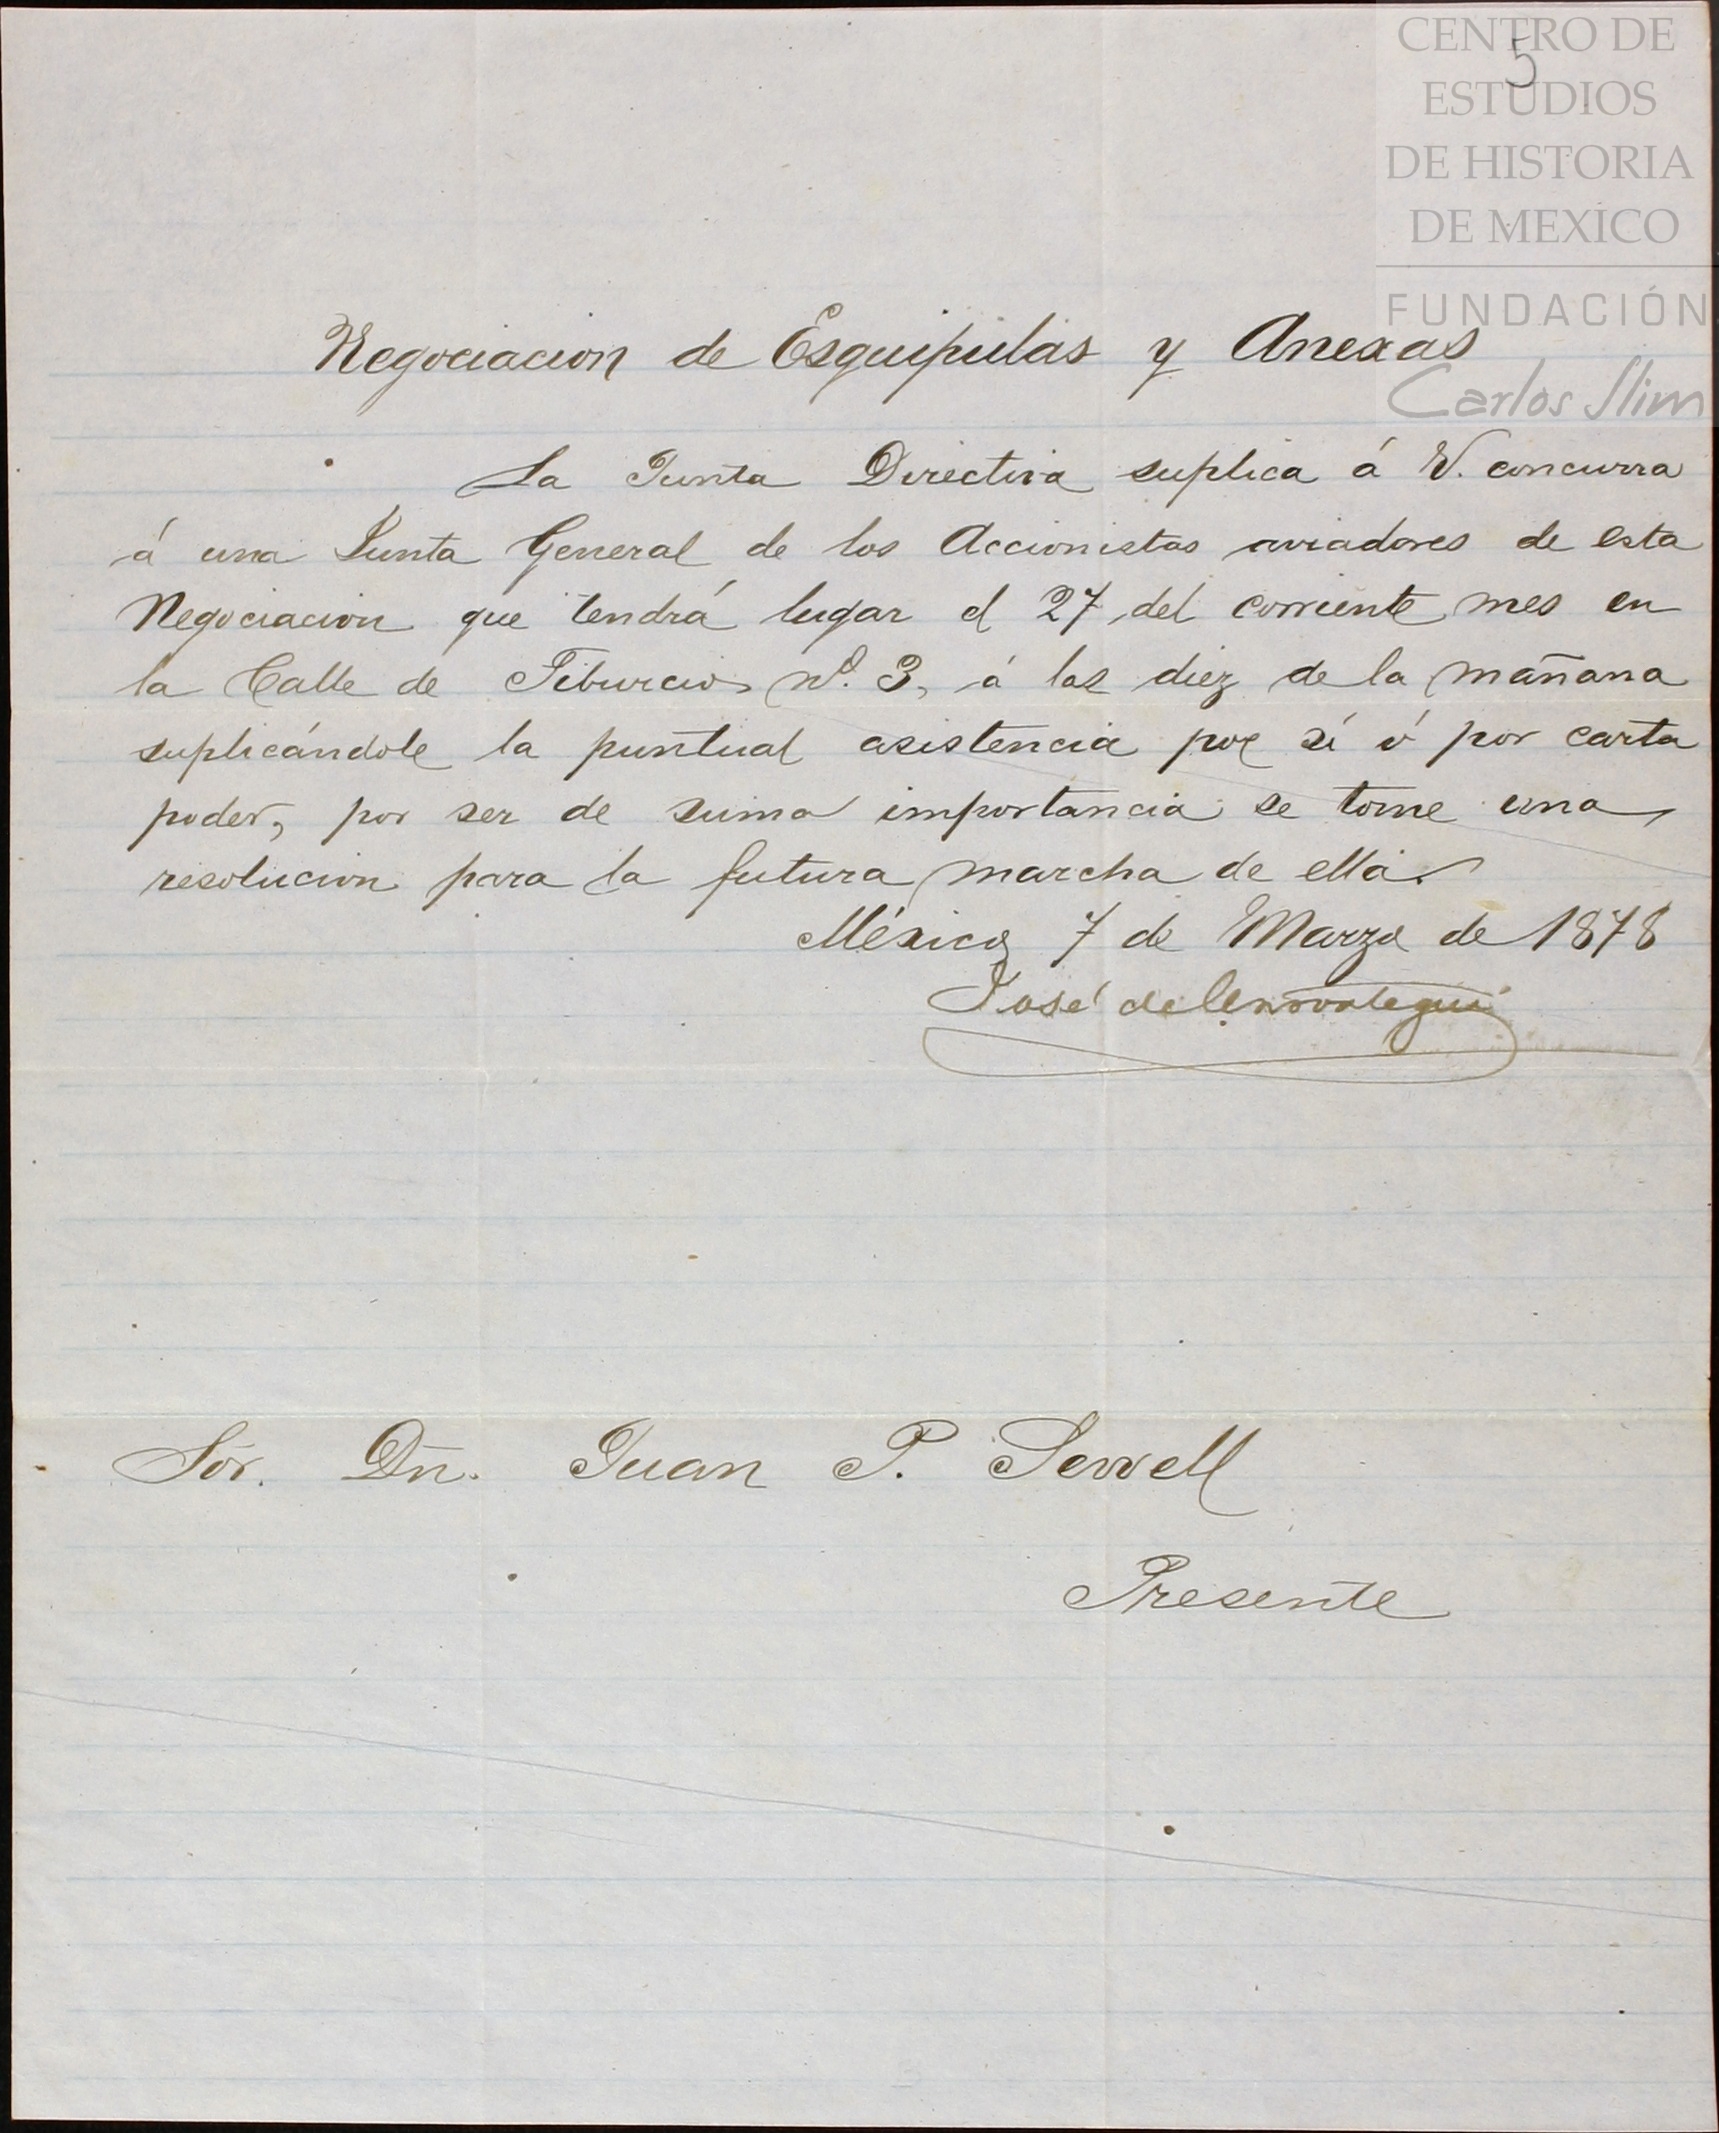 CENTRO DE
ESTUDIOS
DE HISTORIA
DE MEXICO
FUNDACIÓN
Carlos Slim
5
Negociacion de Esquipulas y Anexas
La Junta Directiva suplica á V. concurra
á una Junta General de los Accionistas aviadores de esta
Negociacion que tendrá lugar el 27 del corriente mes en
la Calle de Tiburcio nº. 3, á las diez de la mañana
suplicándole la puntual asistencia por sí ó por carta
poder, por ser de suma importancia se tome una
resolucion para la futura marcha de ella.
México 7 de Marzo de 1878
José de
Sór. Dn. Juan P. Sewell
Presente